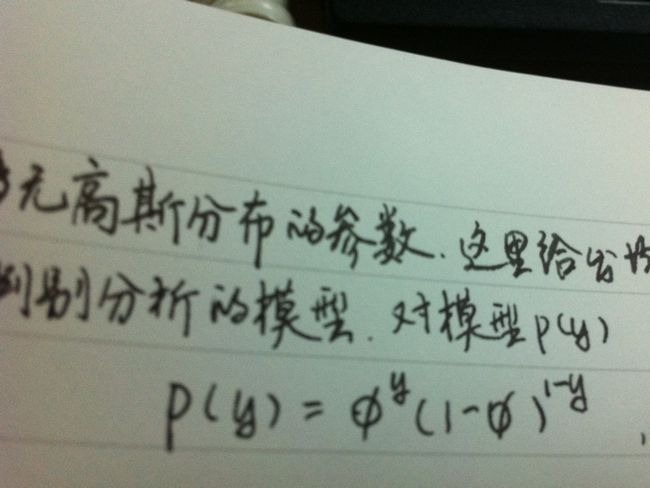 元高斯分布的参数.这里给出
判别分析的模型.对模型p(y)
p(y) = φ^y (1-φ)^{1-y}